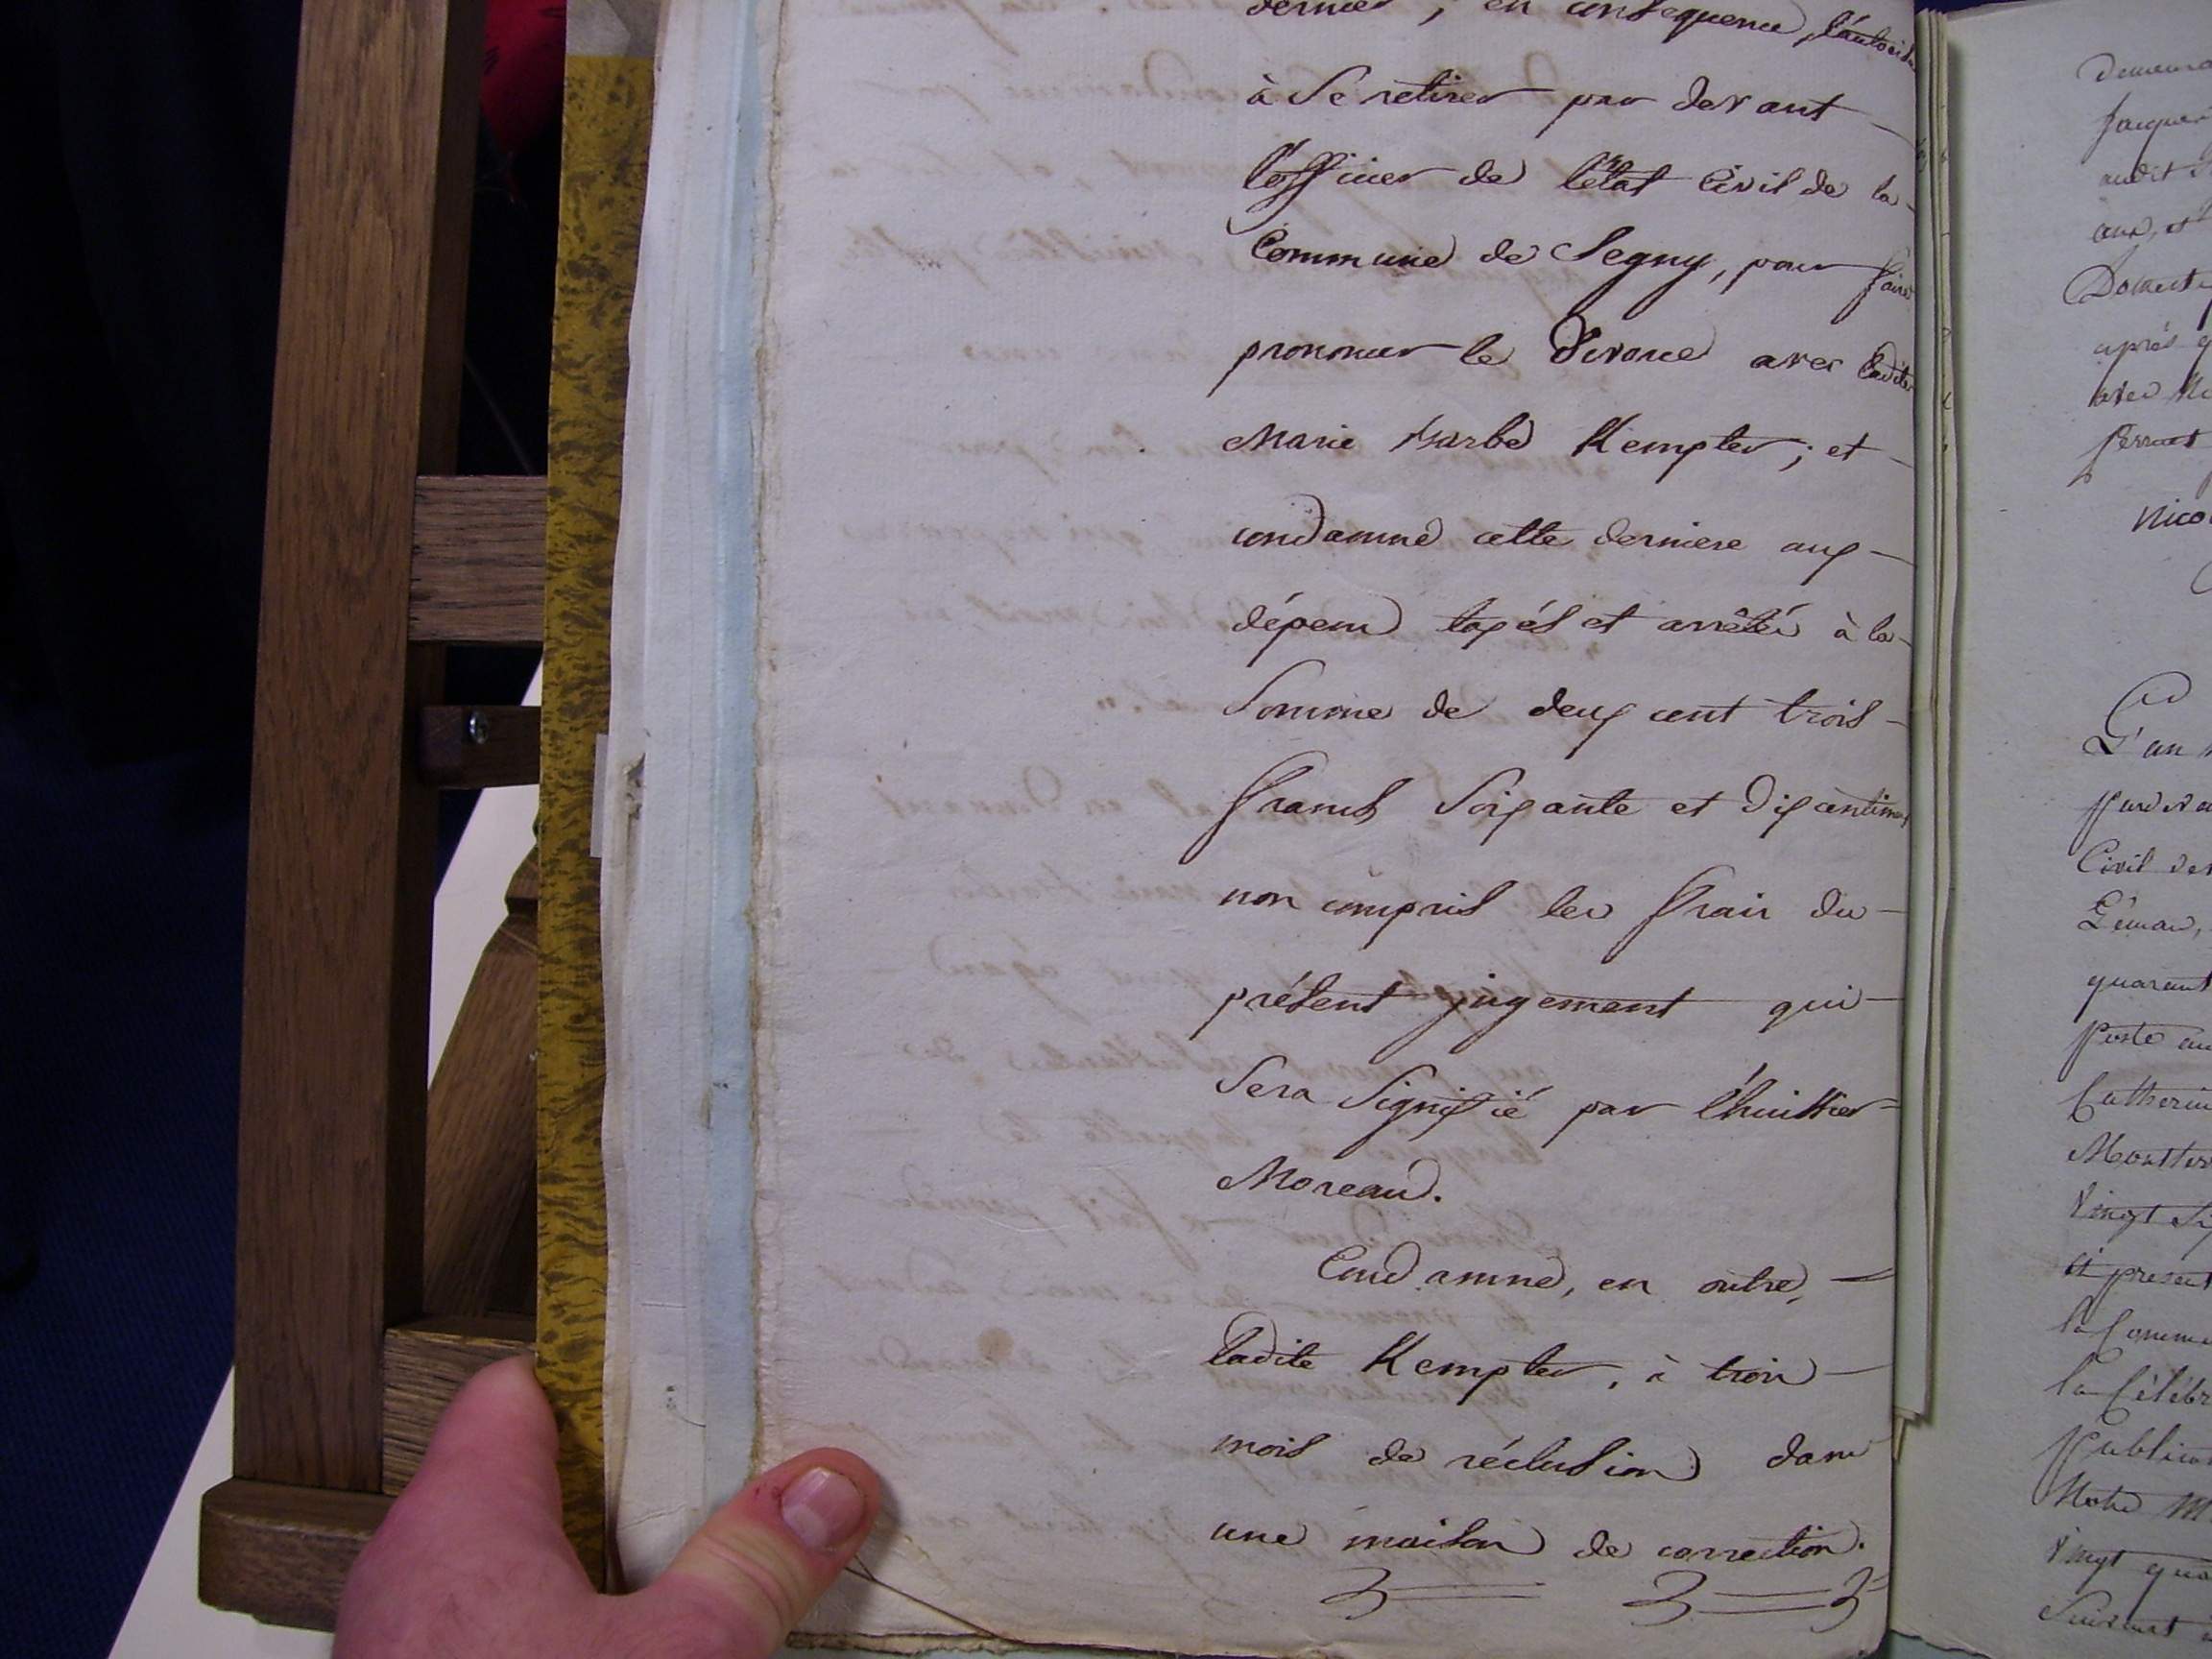 dernier, en conséquence, l'autorise
à se retirer par devant
l'officier de l'état Civil de la
Commune de Segny, pour faire
prononcer le Divorce avec ladite
Marie Barbe Kempter; et
condamne cette derniere aux
dépens taxés et arrêtés à la
Somme de deux cent trois
francs Soixante et dix centimes
non compris les frais du
présent jugement qui
Sera Signifié par l'huissier
Moreau.
Condamne, en outre,
ladite Kempter, à trois
mois de réclusion dans
une maison de correction.
Jacques
audit
ans, et
après
avec
Nico
L'an
Civil
Léman,
quarant
Poste au
Catherine
vingt Six
ci present
la Commu
la Célébr
Publicat
Notre M
vingt qua
Suivant